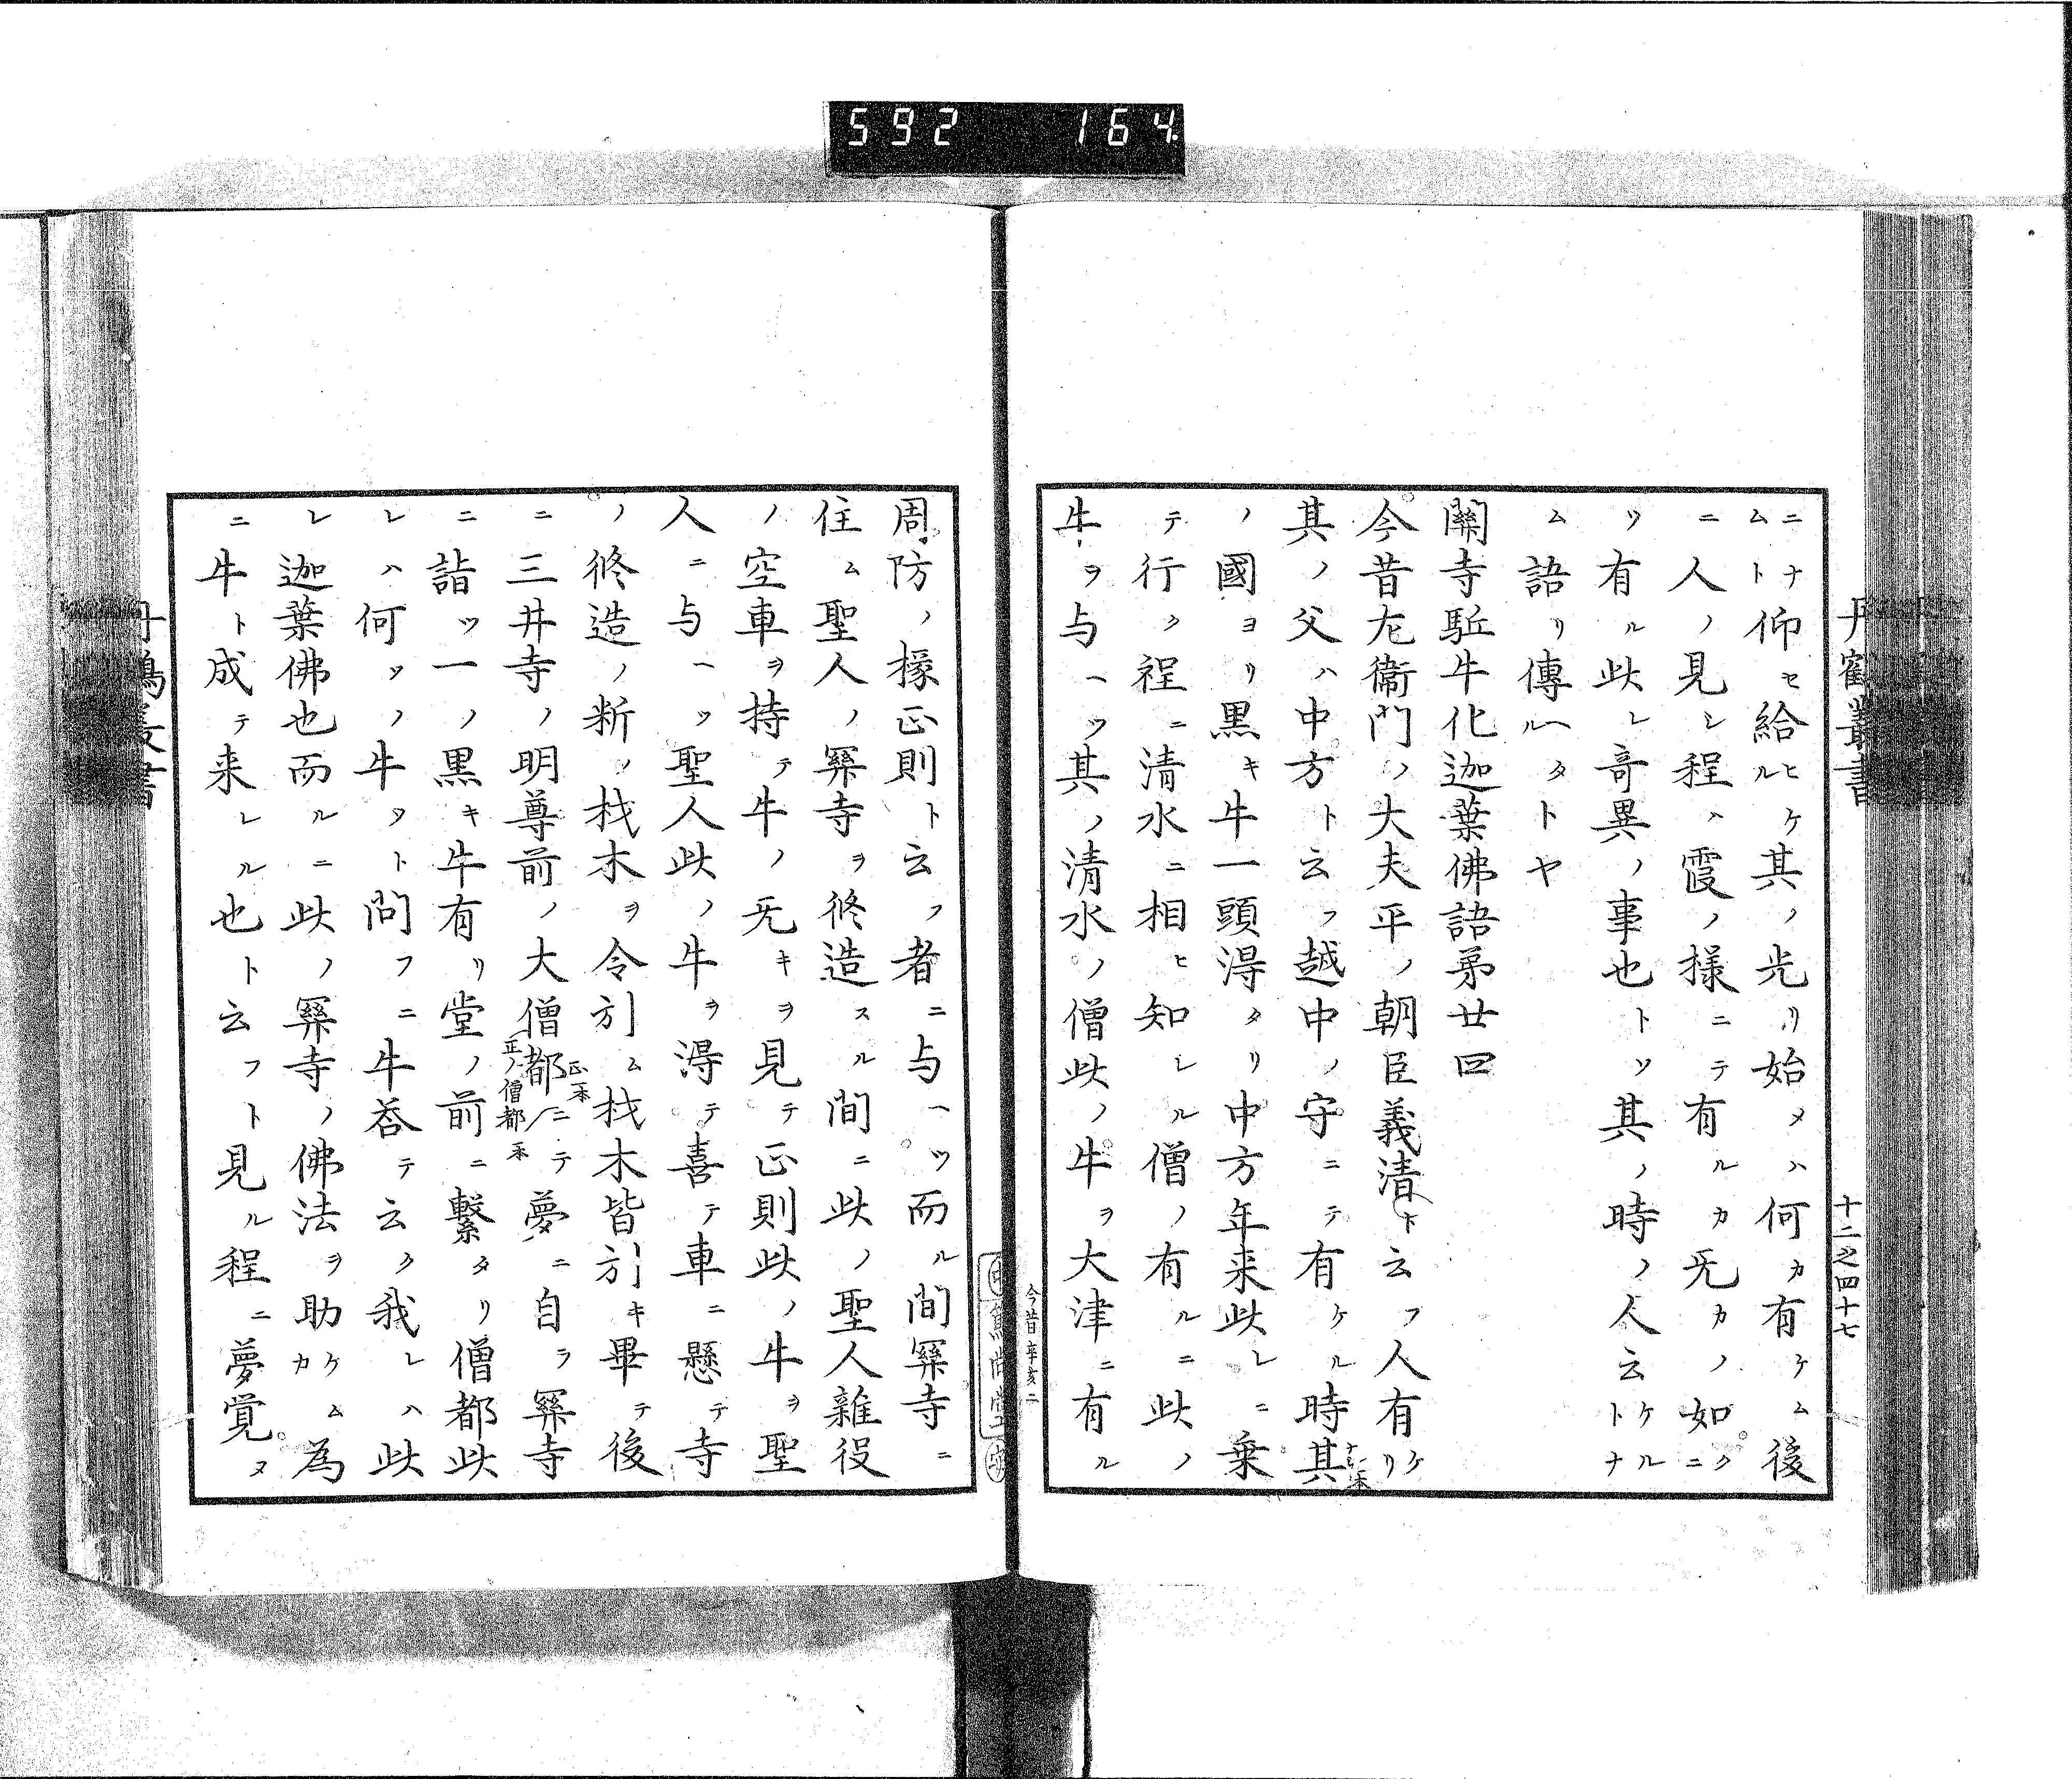 592 164
丹鶴叢書
十二之四十七
ニナムト仰セ給ヒケル其ノ光リ始メハ何カ有ケム後
ニ人ノ見シ程ハ霞ノ様ニテ有ルカ无カノ如クニ
ツ有ル此レ奇異ノ事也トツ其ノ時ノ人云ケルトナ
ム語リ傳ヘタルトヤ
關寺駈牛化迦葉佛語第廿四
今昔左衞門ノ大夫平ノ朝臣義清ト云フ人有ケリ
其ノ父ハ中方ト云フ越中ノ守ニテ有ケル時其
ノ國ヨリ黒キ牛一頭得タリ中方年来此レニ乗
テ行ク程ニ清水ニ相ヒ知レル僧ノ有ルニ此ノ
牛ヲ与ヘツ其ノ清水ノ僧此ノ牛ヲ大津ニ有ル
今昔辛亥二
周防ノ掾正則ト云フ者ニ与ヘツ而ル間關寺ニ
住ム聖人ノ關寺ヲ修造スル間ニ此ノ聖人雜役
ノ空車ヲ持テ牛ノ无キヲ見テ正則此ノ牛ヲ聖
人ニ与ヘツ聖人此ノ牛ヲ得テ喜テ車ニ懸テ寺
ノ修造ノ断ノ材木ヲ令引ム材木皆引キ畢テ後
ニ三井寺ノ明尊前ノ大僧都ニテ夢ニ自ラ關寺
正一本
正ノ僧都本
ニ詣ツ一ノ黒キ牛有リ堂ノ前ニ繋タリ僧都此
レハ何ツノ牛ソト問フニ牛荅テ云ク我レハ此
レ迦葉佛也而ルニ此ノ關寺ノ佛法ヲ助ケムカ為
ニ牛ト成テ来レル也ト云フト見ル程ニ夢覚ヌ